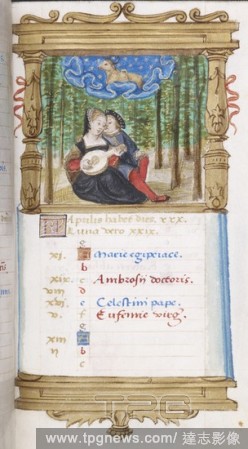 Aprilis habet dies. xxx.
Luna vero xxix.
g
xi. A Marie egipciace.
b
c
xix. c Ambrosii doctoris.
viii d
xvi. e Celestini pape.
v. f Eufemie virg.
g
xiii A
ii b
c
TPG
www.tpgnews.com/ 達志影像